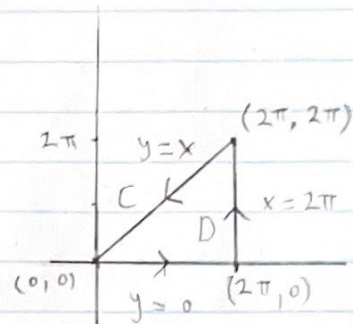 (2π, 2π)
2π
y=x
C
x=2π
D
(0,0)
y=0
(2π,0)